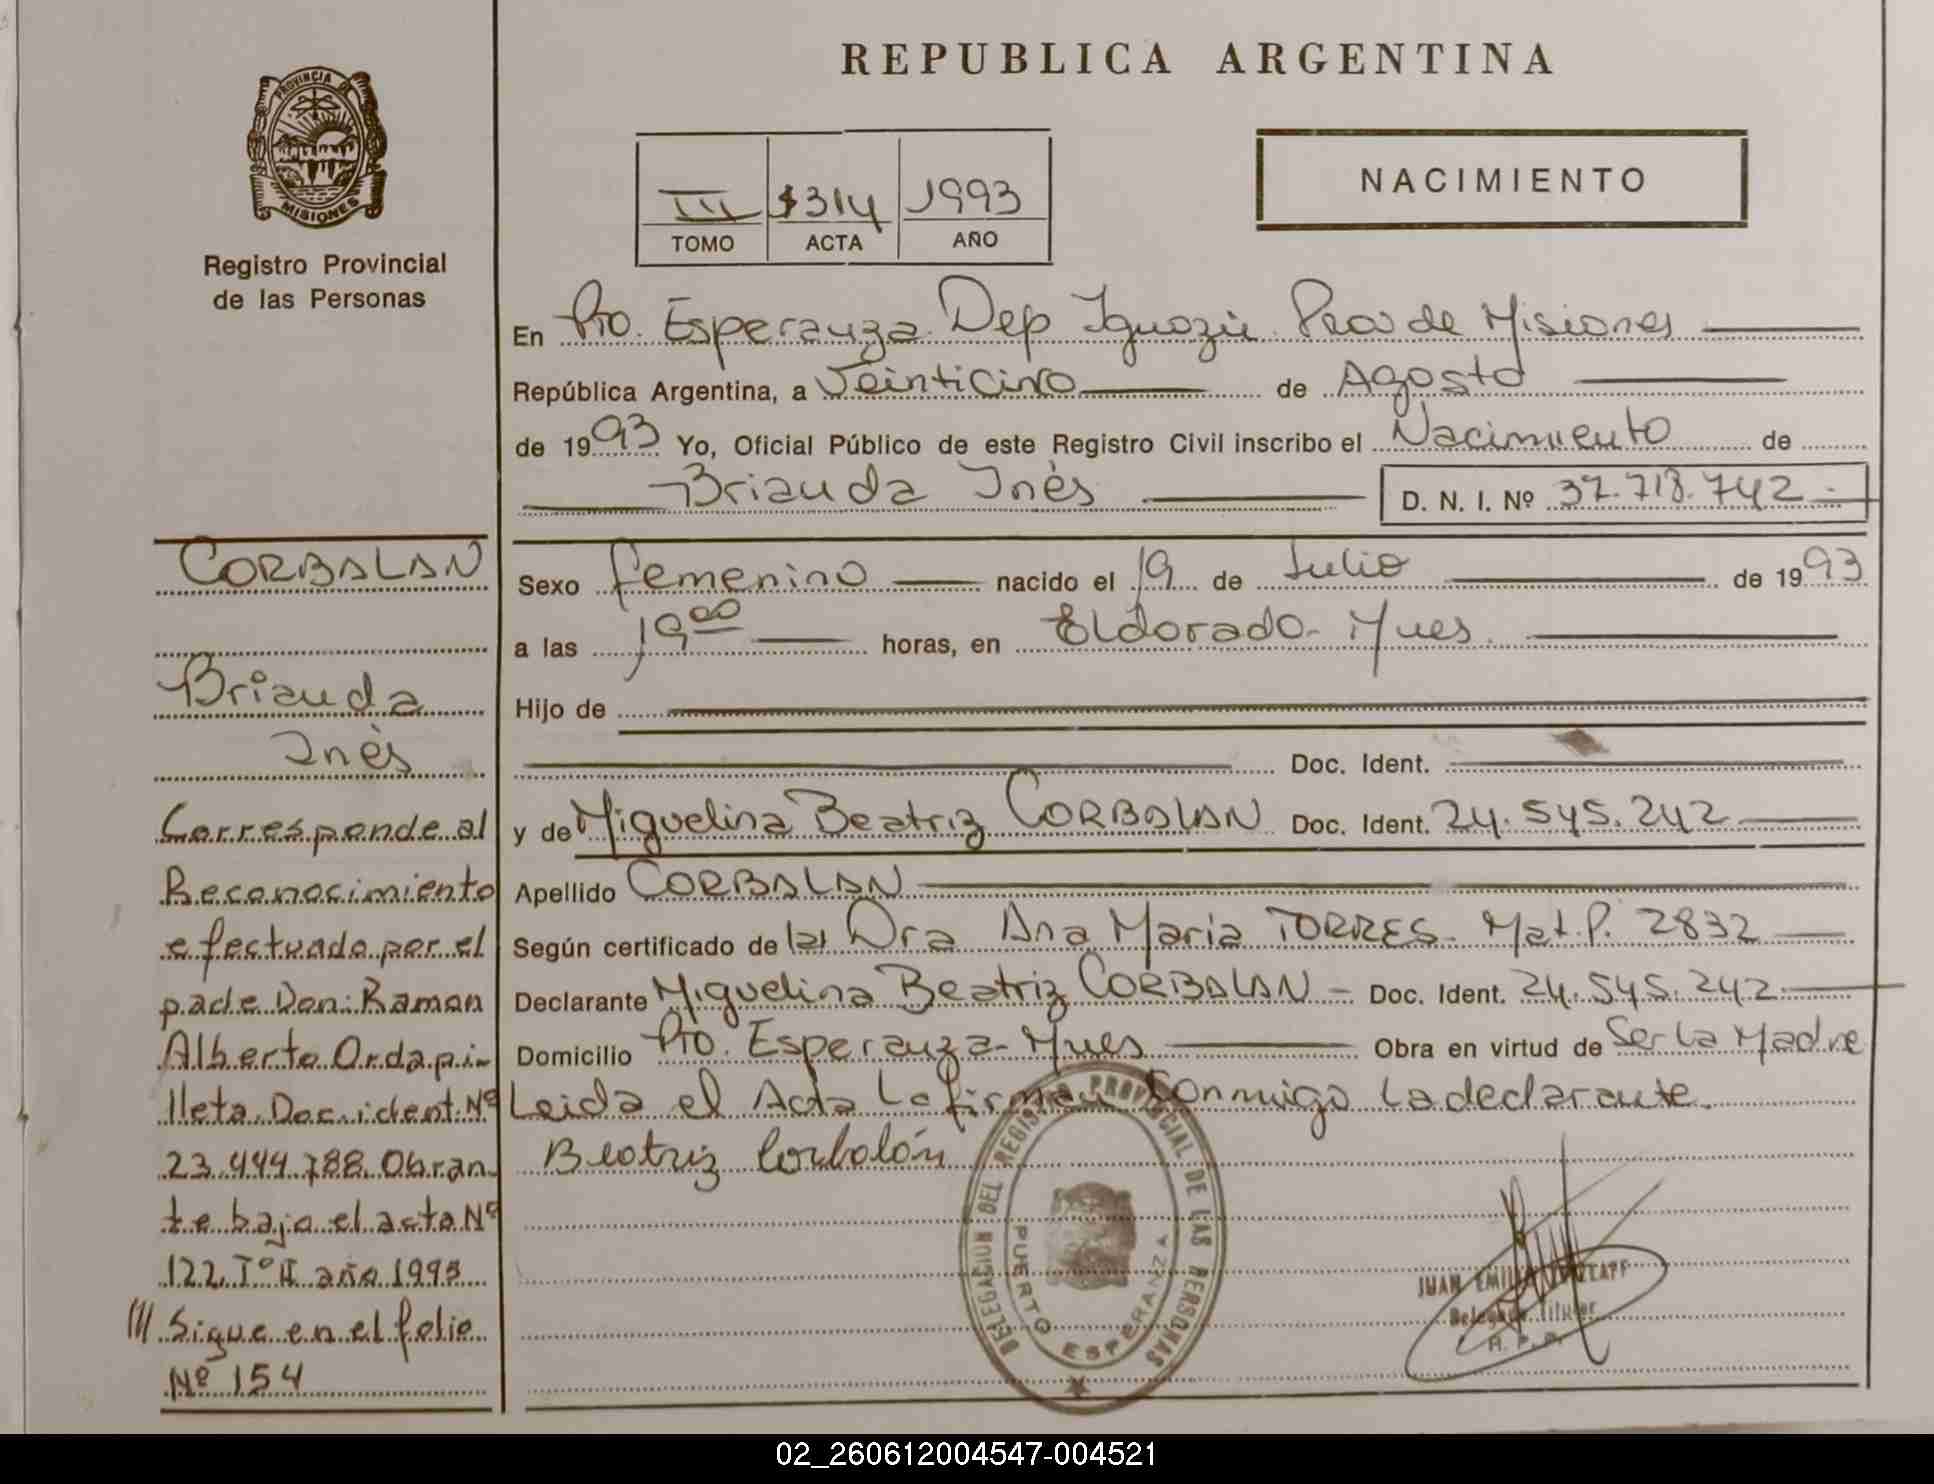 REPUBLICA ARGENTINA
PROVINCIA DE
MISIONES
Registro Provincial
de las Personas
III $314 1993
TOMO ACTA AÑO
NACIMIENTO
En Pto. Esperanza Dep Iguazú Pcia de Misiones
República Argentina, a Veinticinco de Agosto
de 1993 Yo, Oficial Público de este Registro Civil inscribo el Nacimiento de
Brianda Inés D. N. I. Nº 37.718.742
Sexo femenino nacido el 19 de Julio de 1993
a las 19 00 horas, en Eldorado - Mnes.
Hijo de
Doc. Ident.
y de Miguelina Beatriz CORBALAN Doc. Ident. 24.545.242
Apellido CORBALAN
Según certificado de la Dra Ana Maria TORRES - Mat. P. 2832
Declarante Miguelina Beatriz CORBALAN - Doc. Ident. 24.545.242
Domicilio Pto. Esperanza - Mnes Obra en virtud de Ser la Madre
Leida el Acta La firman Conmigo La declarante.
Beatriz Corbalán
CORBALAN
Brianda
Inés
Corresponde al
Reconocimiento
efectuado por el
pade Don: Ramon
Alberto Ordapi-
lleta Doc. ident. Nº
23.444.788. Obran
te bajo el acta Nº
122 Tº II año 1993
/// Sigue en el folio
Nº 154
DELEGACION DEL REGISTRO PROVINCIAL DE LAS PERSONAS
PUERTO ESPERANZA
JUAN
Delegado Titular
R. P. P.
02_260612004547-004521